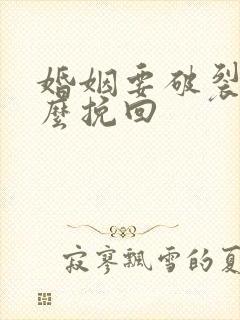 婚姻要破裂
麼挽回
寂寥飄雪的夏